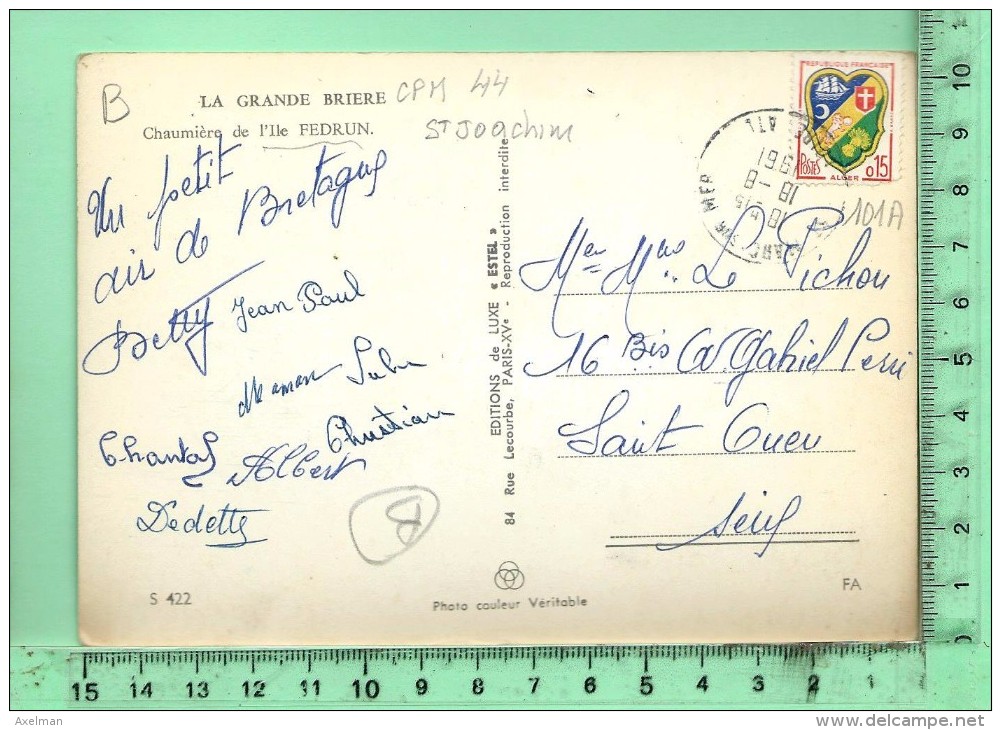 B
LA GRANDE BRIERE
CPM 44
Chaumière de l'Ile FEDRUN.
St Joachim
Un petit
air de Bretagne
Betty Jean Paul
Maman
Christian
Chantal
Albert
Dedette
S 422
EDITIONS de LUXE « ESTEL »
84 Rue Lecourbe, PARIS-XVe - Reproduction interdite
Photo couleur Véritable
REPUBLIQUE FRANÇAISE
POSTES
ALGER
0,15
SUR MER
ATL
18-8
1961
1101A
Mr Mme Le Pichou
16 Bis Av. Gabriel Peri
Saint Ouen
Seine
FA
10
9
8
7
6
5
4
3
2
1
0
15 14 13 12 11 10 9 8 7 6 5 4 3 2 1
Axelman
delcampe.net